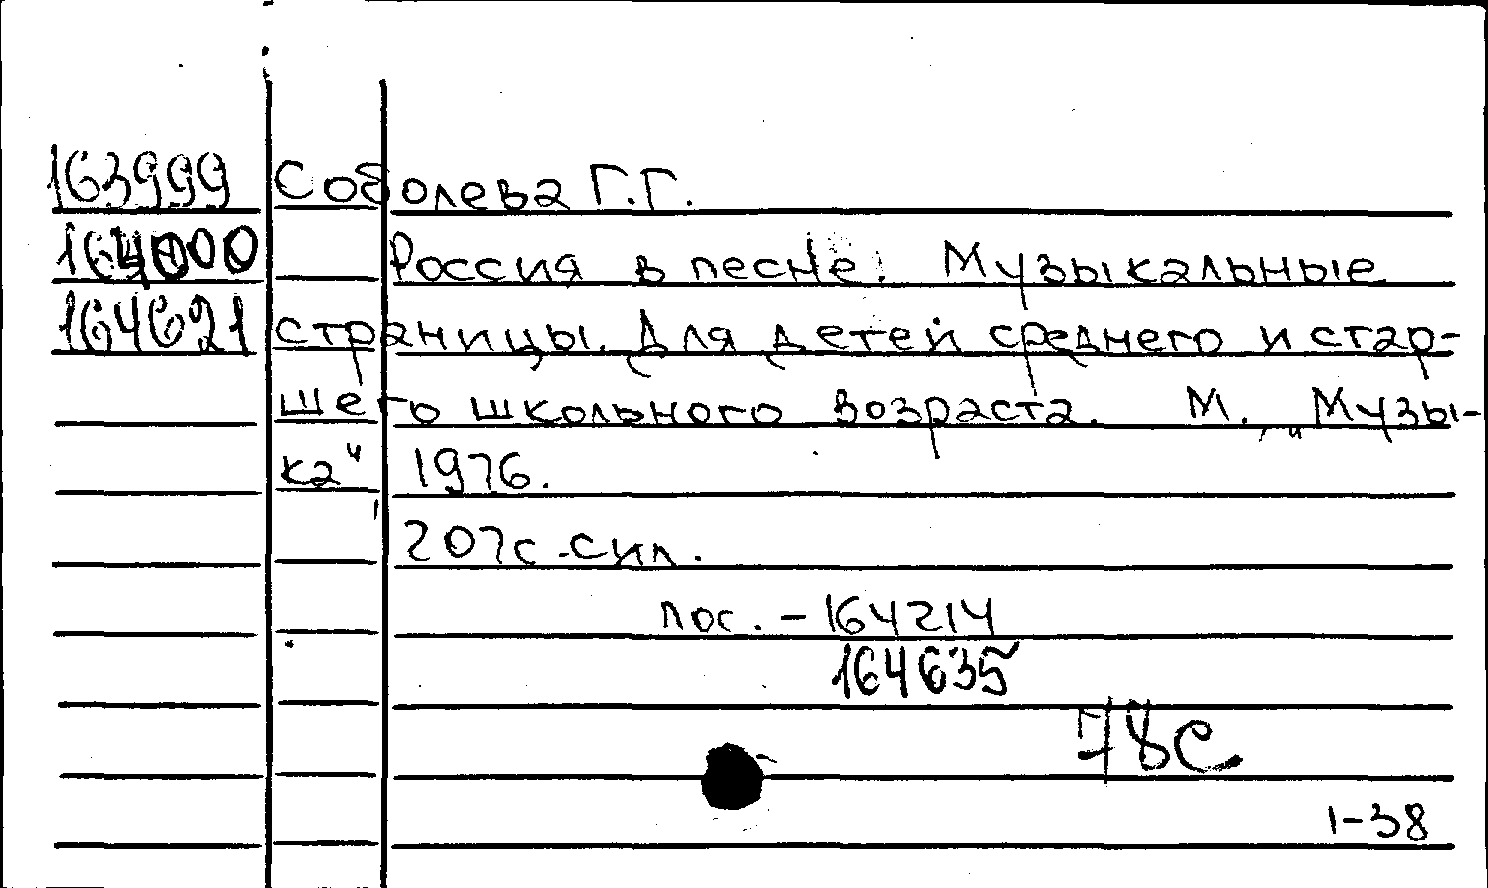 163999 Соболева Г.Г.
164000 Россия в песне. Музыкальные
164621 страницы. Для детей среднего и стар-
шего школьного возраста. М., „Музы-
ка", 1976.
207с. с ил.
пос. - 164214
164635
78С
1-38